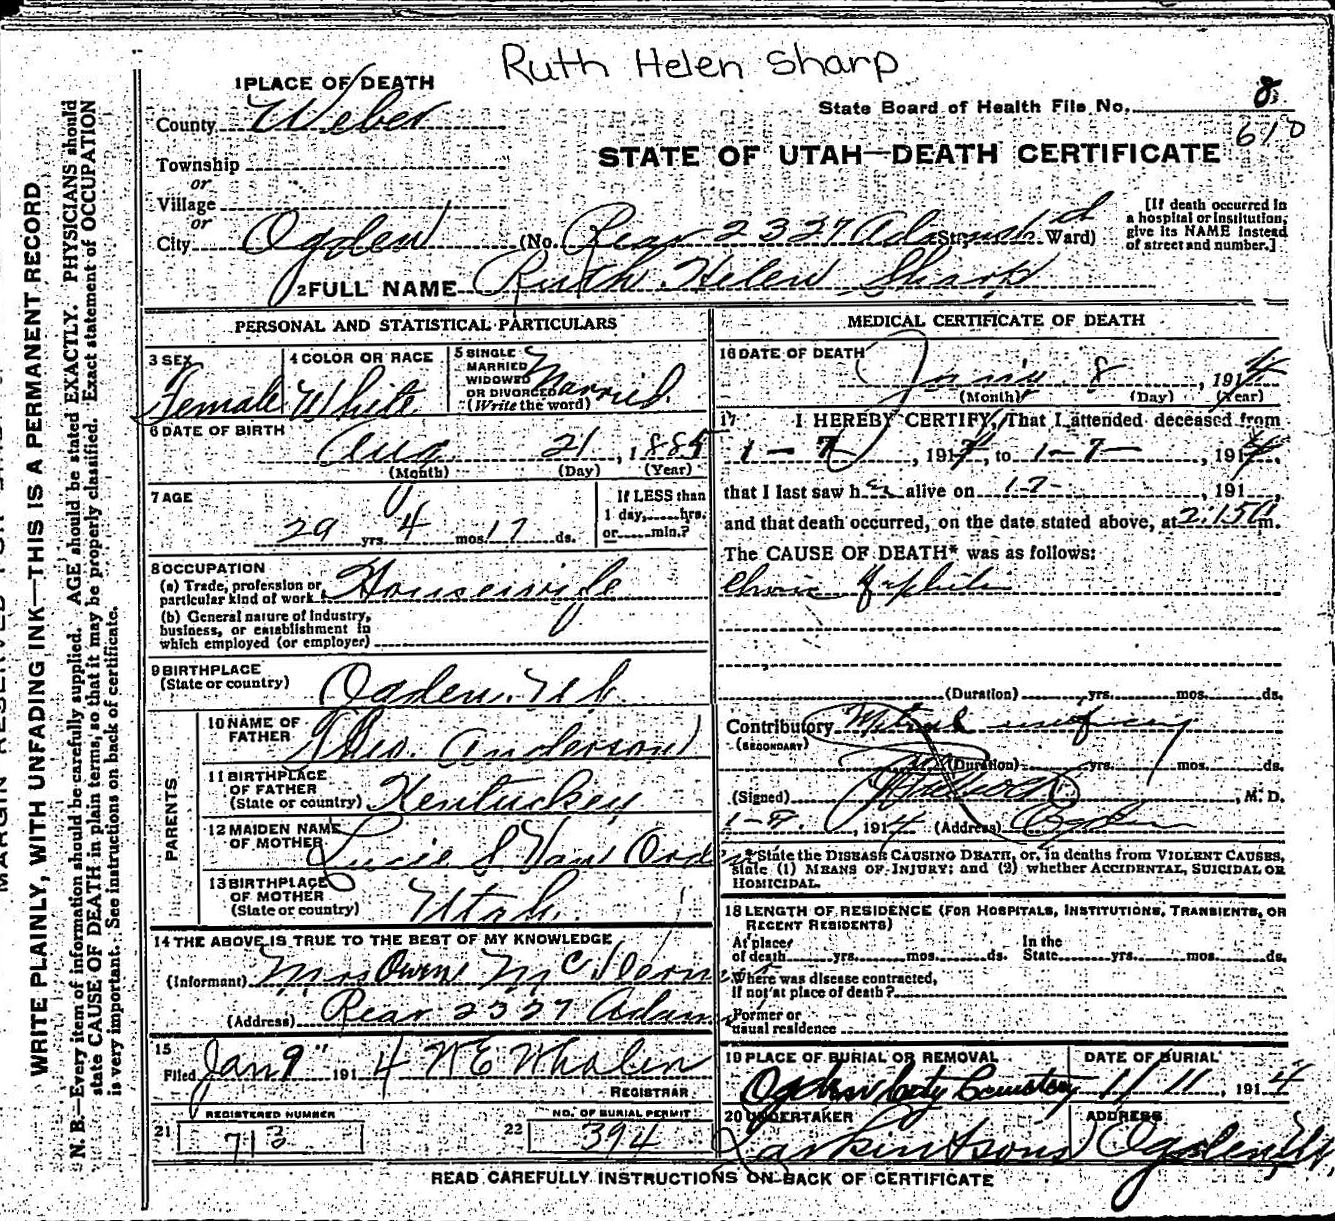 Ruth Helen Sharp
1 PLACE OF DEATH
State Board of Health File No. 8
County Weber
STATE OF UTAH—DEATH CERTIFICATE
Township
or
Village
or
City Ogden (No. Rear 2327 Adams St. Ward)
[If death occurred in
a hospital or institution,
give its NAME instead
of street and number.]
2 FULL NAME Ruth Helen Sharp
PERSONAL AND STATISTICAL PARTICULARS
3 SEX Female
4 COLOR OR RACE White
5 SINGLE
MARRIED
WIDOWED
OR DIVORCED
(Write the word) Married
6 DATE OF BIRTH
Aug 21, 188
(Month) (Day) (Year)
7 AGE
29 yrs. 4 mos. 17 ds.
If LESS than
1 day, hrs.
or min.?
8 OCCUPATION
(a) Trade, profession or
particular kind of work Housewife
(b) General nature of industry,
business, or establishment in
which employed (or employer)
9 BIRTHPLACE
(State or country) Ogden, Utah
PARENTS
10 NAME OF
FATHER Theo. Anderson
11 BIRTHPLACE
OF FATHER
(State or country) Kentucky
12 MAIDEN NAME
OF MOTHER Lucie S Van Orden
13 BIRTHPLACE
OF MOTHER
(State or country) Utah
14 THE ABOVE IS TRUE TO THE BEST OF MY KNOWLEDGE
(Informant) Mrs Owen
(Address) Rear 2327 Adams
15
Filed Jan 9" 1914 W E Whalen
REGISTRAR
REGISTERED NUMBER
21 713
NO. OF BURIAL PERMIT
22 394
MEDICAL CERTIFICATE OF DEATH
16 DATE OF DEATH
8, 1914
(Month) (Day) (Year)
17 I HEREBY CERTIFY, That I attended deceased from
1-7, 1914, to 1-7-, 1914,
that I last saw her alive on 1-7-, 191 ,
and that death occurred, on the date stated above, at 2:15 m.
The CAUSE OF DEATH* was as follows:
(Duration) yrs. mos. ds.
Contributory Mitral
(SECONDARY)
(Duration) yrs. mos. ds.
(Signed) , M. D.
1-8, 1914 (Address) Ogden
*State the DISEASE CAUSING DEATH, or, in deaths from VIOLENT CAUSES,
state (1) MEANS OF INJURY; and (2) whether ACCIDENTAL, SUICIDAL OR
HOMICIDAL.
18 LENGTH OF RESIDENCE (FOR HOSPITALS, INSTITUTIONS, TRANSIENTS, OR
RECENT RESIDENTS)
At place
of death yrs. mos. ds.
In the
State yrs. mos. ds.
Where was disease contracted,
if not at place of death?
Former or
usual residence
19 PLACE OF BURIAL OR REMOVAL
Ogden City Cemetery
DATE OF BURIAL
1/11 1914
20 UNDERTAKER
Larkin & Sons
ADDRESS
Ogden, Ut.
READ CAREFULLY INSTRUCTIONS ON BACK OF CERTIFICATE
WRITE PLAINLY, WITH UNFADING INK—THIS IS A PERMANENT RECORD
N. B.—Every item of information should be carefully supplied. AGE should be stated EXACTLY. PHYSICIANS should
state CAUSE OF DEATH in plain terms, so that it may be properly classified. Exact statement of OCCUPATION
is very important. See instructions on back of certificate.